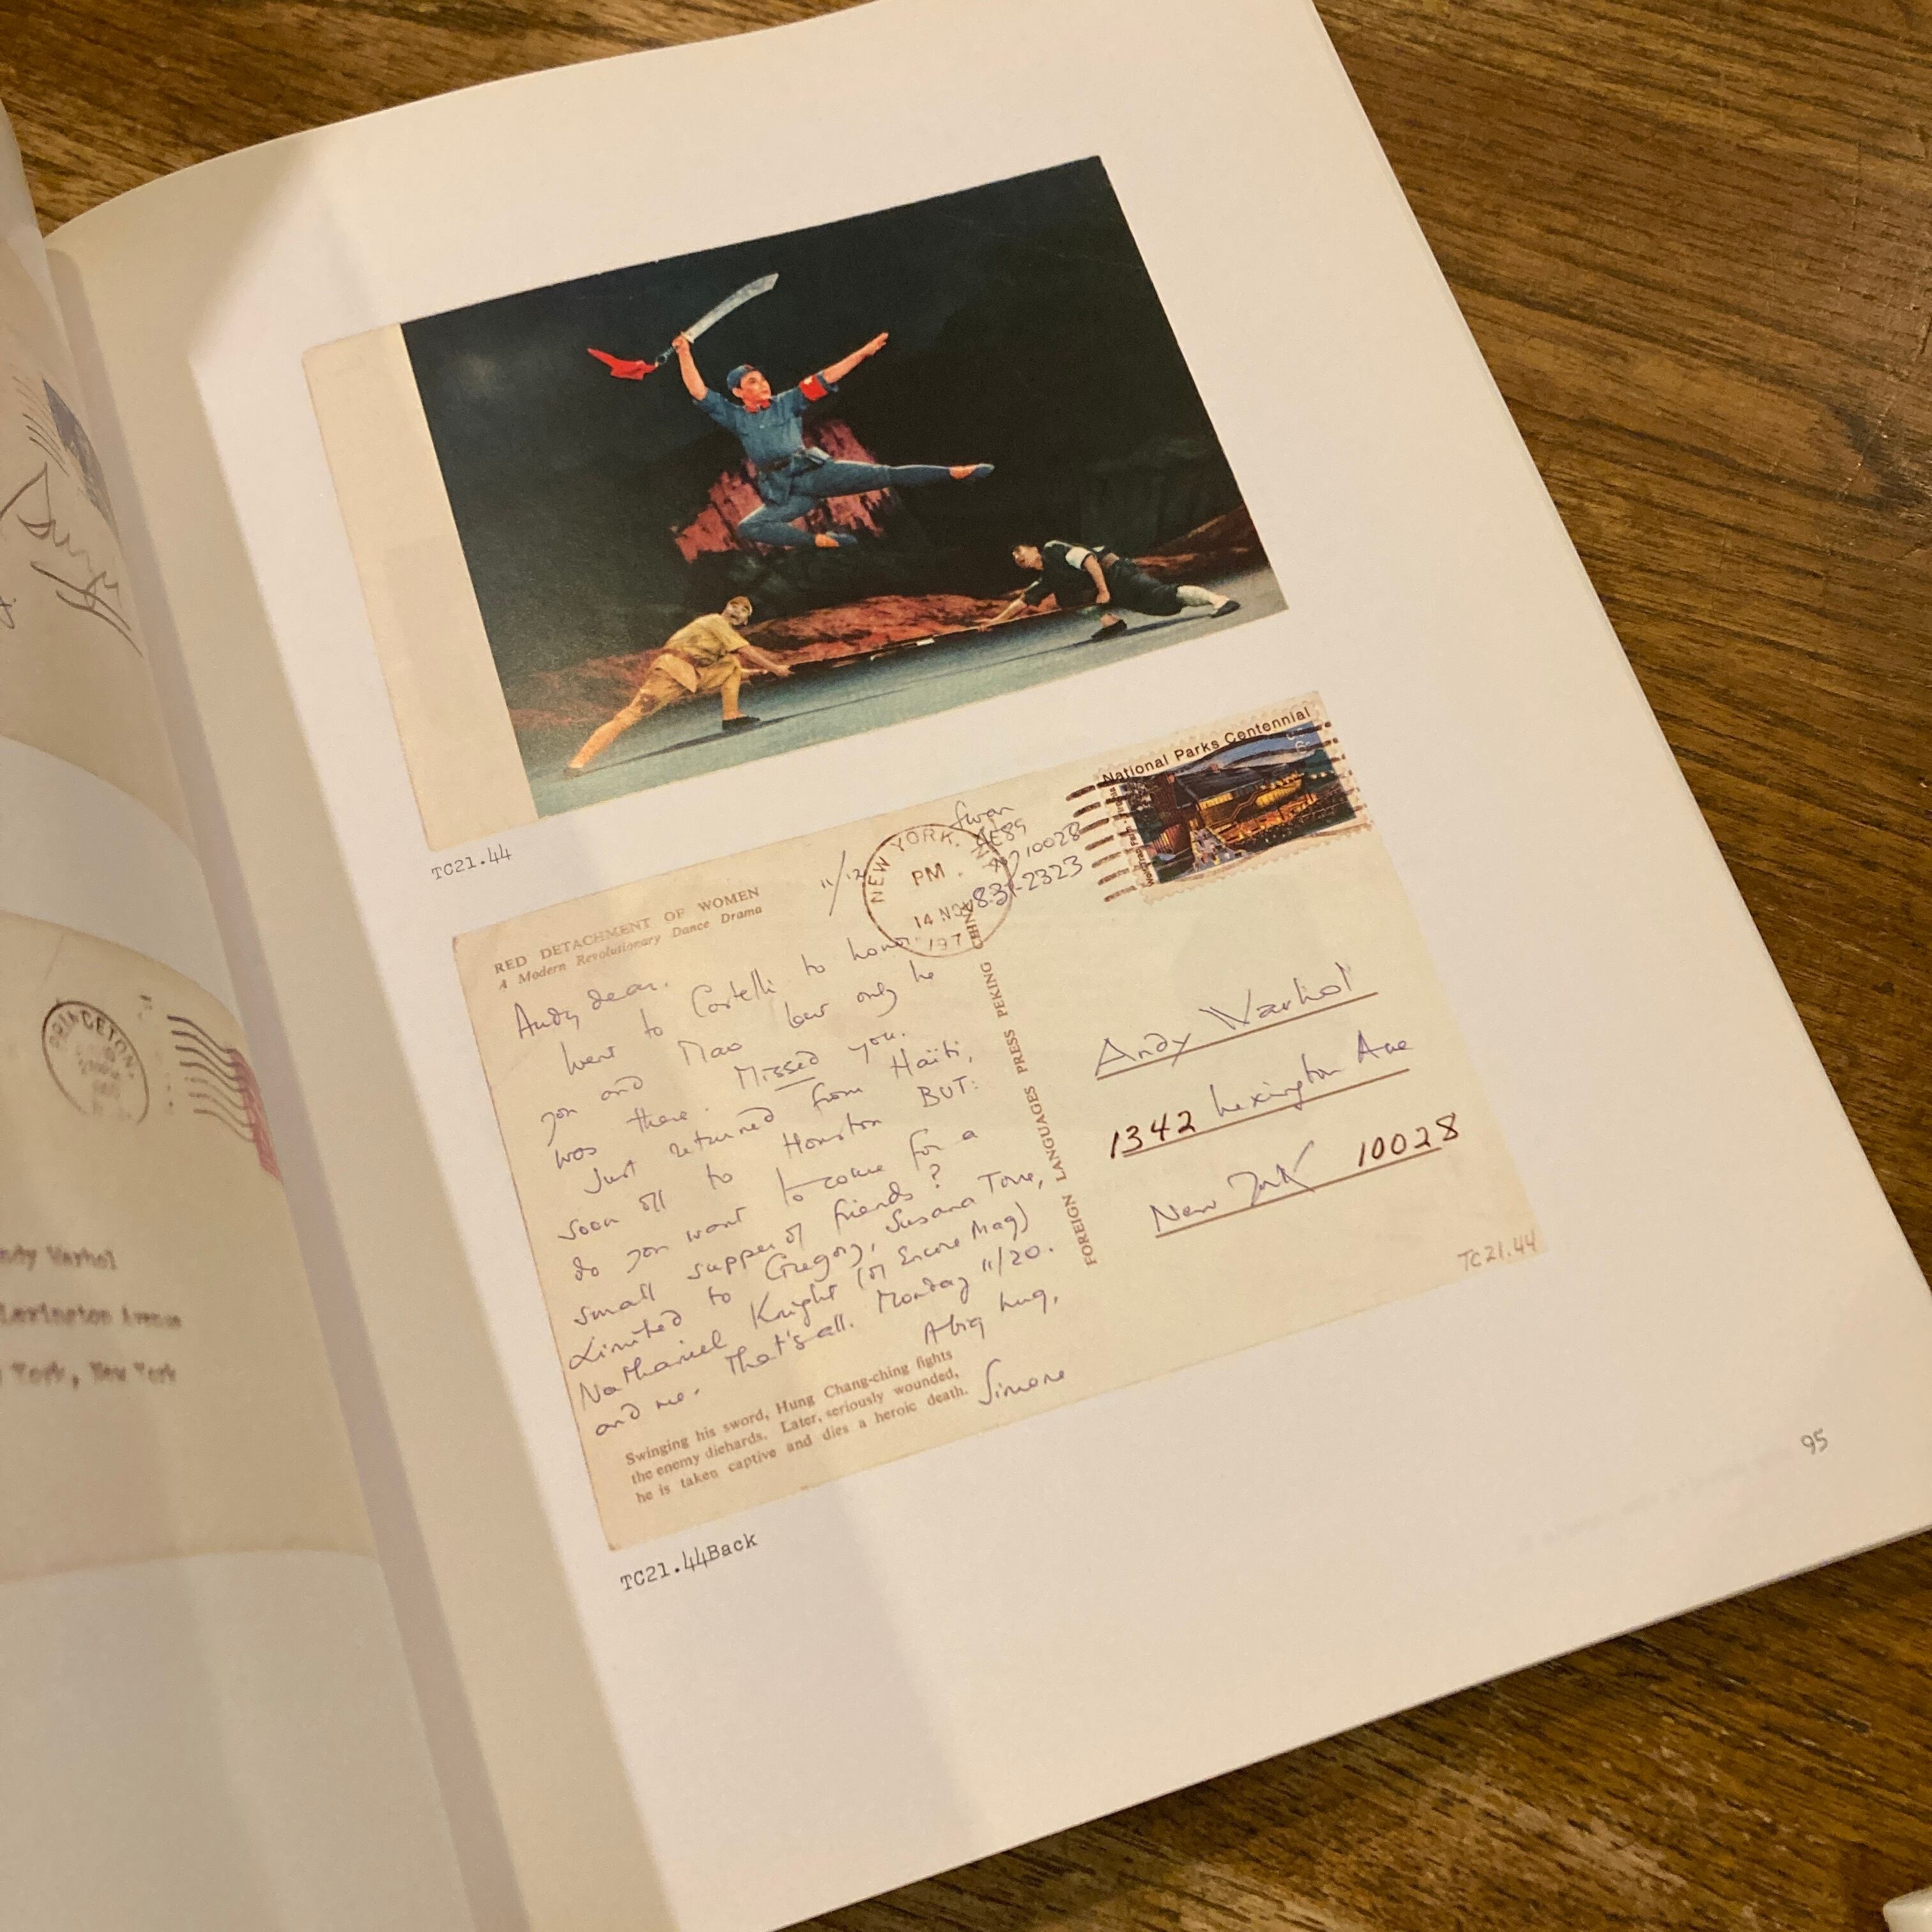 PRINCETON,
ndy Warhol
Lexington Avenue
York, New York
TC21.44
RED DETACHMENT OF WOMEN
A Modern Revolutionary Dance Drama
11/12
NEW YORK, N
PM
14 NOV
197
10028
831-2323
National Parks Centennial
Andy dear.
Went to Castelli to honor
you and Mao but only he
was there. Missed you.
Just returned from Haïti,
soon off to Houston BUT:
do you want to come for a
small supper of friends?
Limited to Gregory, Susana Torre,
Nathaniel Knight (of Encore Mag)
and me. That's all. Monday 11/20.
A big hug,
Simone
Swinging his sword, Hung Chang-ching fights
the enemy diehards. Later, seriously wounded,
he is taken captive and dies a heroic death.
FOREIGN LANGUAGES PRESS PEKING CHINA
Andy Warhol
1342 Lexington Ave
New York 10028
TC21.44
TC21.44Back
95